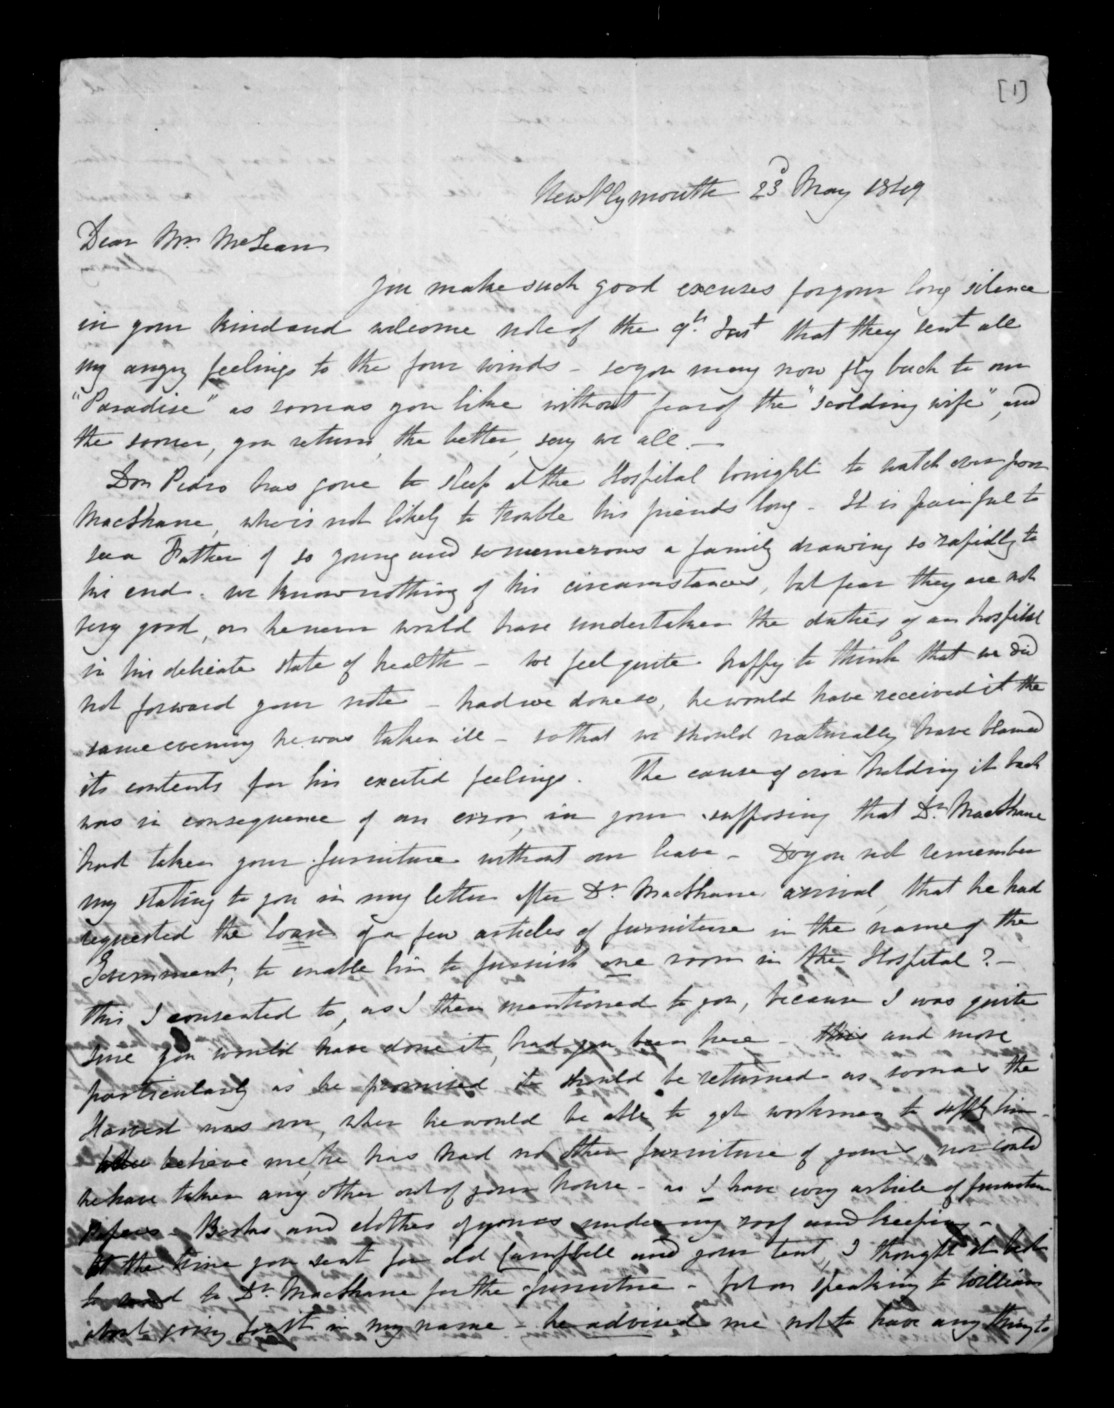 [1]
New Plymouth 23d May 1849
Dear Mr. McLean
You make such good excuses for your long silence
in your kind and welcome note of the 9th Inst that they sent all
my angry feelings to the four winds - so you may now fly back to our
"Paradise" as soon as you like without fear of the "scolding wife", and
the sooner, you return, the better, say we all. -
Don Pedro has gone to sleep at the Hospital tonight to watch over poor
MacShane, who is not likely to trouble his friends long - It is painful to
see a Father of so young and so numerous a family drawing so rapidly to
his end. we know nothing of his circumstances, but fear they are not
very good, or he never would have undertaken the duties of an hospital
in his delicate state of health - we feel quite happy to think that we did
not forward your note - had we done so, he would have received it the
same evening he was taken ill - so that we should naturally have blamed
its contents for his excited feelings. The cause of our holding it back
was in consequence of an error, in your supposing that Dr. MacShane
had taken your furniture without our leave - Do you not remember
my stating to you in my letter after Dr MacShane arrival, that he had
requested the loan of a few articles of furniture in the name of the
Government, to enable him to furnish one room in the Hospital? -
this I consented to, as I then mentioned to you, because I was quite
sure you would have done it, had you been here - this and more
particularly as he promised it should be returned as soon as the
Harvest was over, when he would be able to get workmen to supply him -
believe me he has had no other furniture of yours nor could
he have taken any other out of your house - as I have every article of furniture
Papers - Books and clothes of yours under my roof and keeping -
At the time you sent for old Campbell and your tent I thought it best
to send to Dr. MacShane for the furniture - but on speaking to William
about going for it in my name - he advised me not to have any thing to